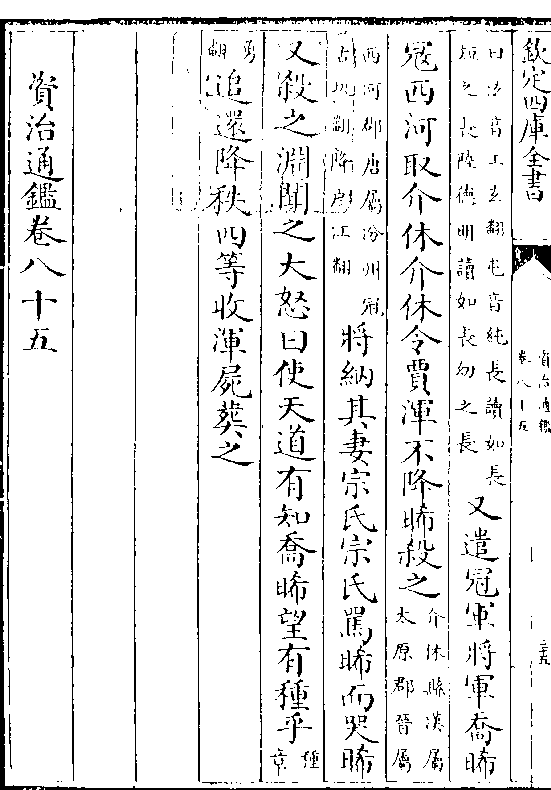 欽定四庫全書
資治通鑑
卷八十五
二十五
曰泫音工玄翻屯音純長讀如長
短之長陸德明讀如長幼之長
又遣冠軍將軍喬晞
寇西河取介休介休令賈渾不降晞殺之
介休縣漢屬
太原郡晉屬
西河郡唐屬汾州冠
古玩翻降戸江翻
將納其妻宗氏宗氏罵晞而哭晞
又殺之淵聞之大怒曰使天道有知喬晞望有種乎
種
章
勇
翻
追還降秩四等收渾屍葬之
資治通鑑卷八十五